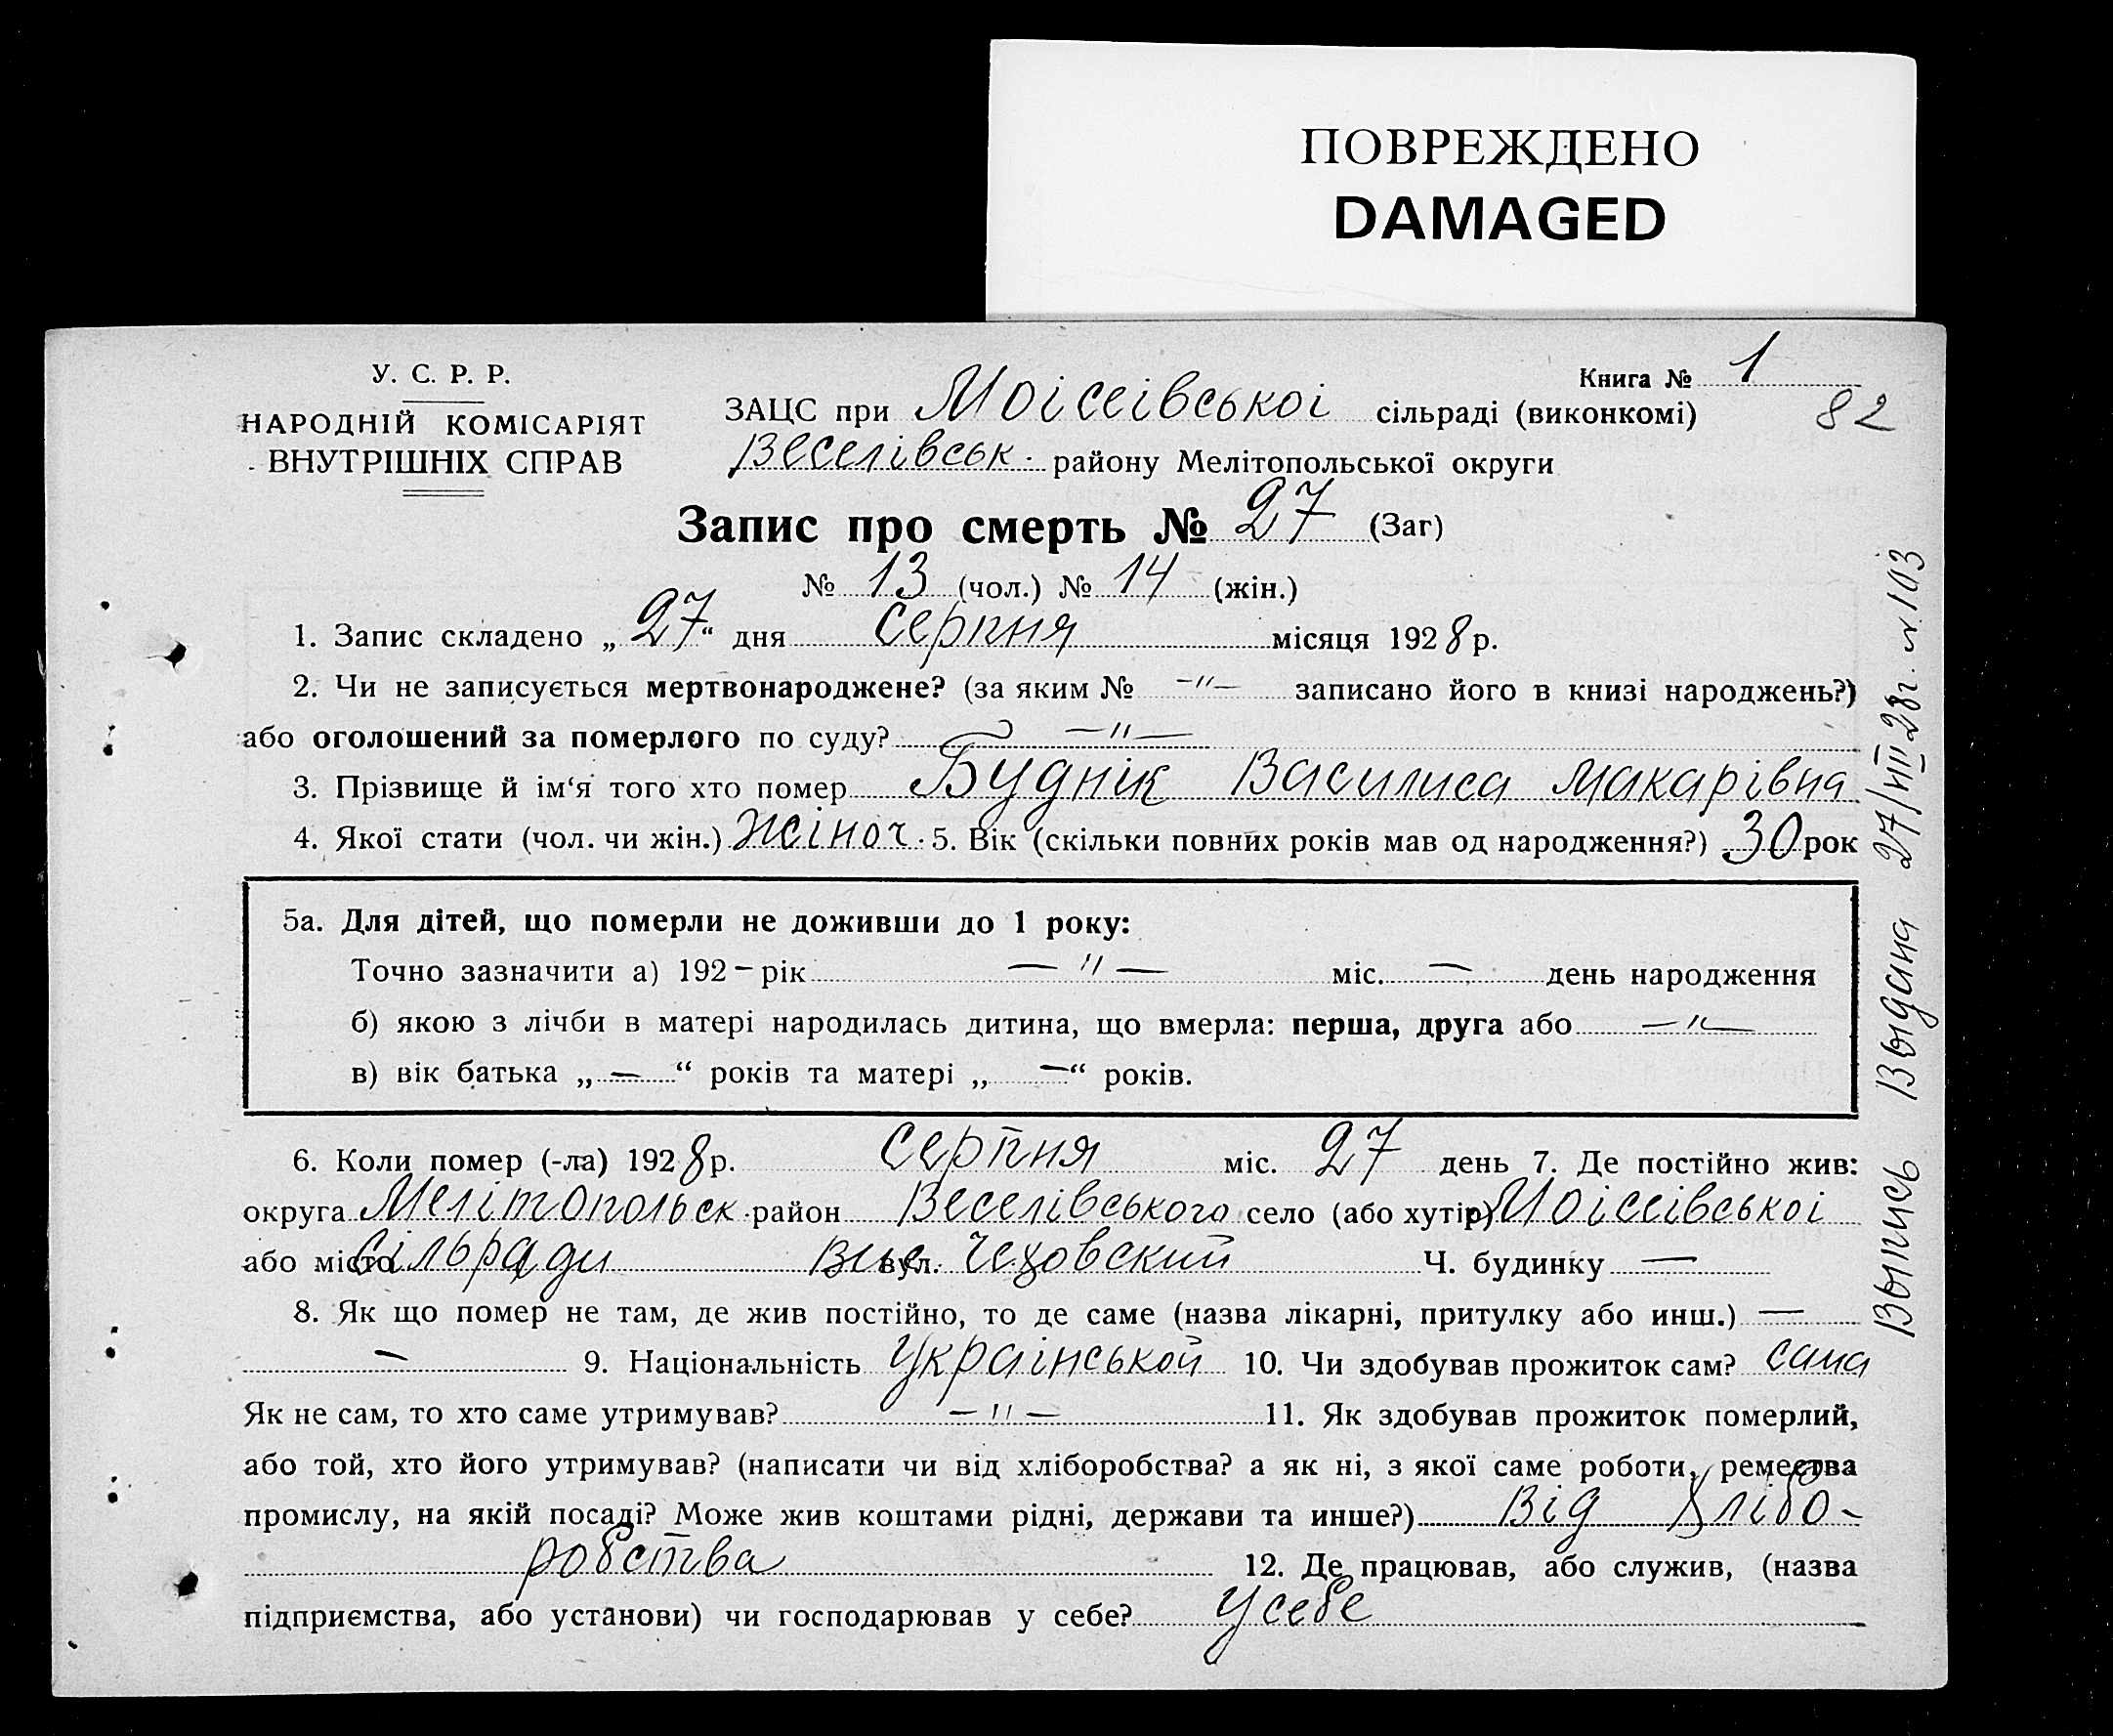 ПОВРЕЖДЕНО
DAMAGED
У. С. Р. Р.
НАРОДНІЙ КОМІСАРІЯТ
ВНУТРІШНІХ СПРАВ
Книга № 1
82
ЗАЦС при Моісеівськоі сільраді (виконкомі)
Веселівськ. району Мелітопольської округи
Запис про смерть № 27 (Заг)
№ 13 (чол.) № 14 (жін.)
1. Запис складено „27“ дня серпня місяця 1928 р.
2. Чи не записується мертвонароджене? (за яким № —"— записано його в книзі народжень?)
або оголошений за померлого по суду? —"—
3. Прізвище й ім‘я того хто помер Буднік Василиса Макарівна
4. Якої стати (чол. чи жін.) Жіноч. 5. Вік (скільки повних років мав од народження?) 30 рок
5а. Для дітей, що померли не доживши до 1 року:
Точно зазначити а) 192— рік —"— міс. — день народження
б) якою з лічби в матері народилась дитина, що вмерла: перша, друга або —"—
в) вік батька „—“ років та матері „—“ років.
6. Коли помер (-ла) 1928 р. серпня міс. 27 день 7. Де постійно жив:
округа Мелітопольськ. район Веселівського село (або хутір) Моісеівськоі
або місто сільради вул. Чеховский Ч. будинку —
8. Як що помер не там, де жив постійно, то де саме (назва лікарні, притулку або инш.) —
— 9. Національність Украінськой 10. Чи здобував прожиток сам? сама
Як не сам, то хто саме утримував? —"— 11. Як здобував прожиток померлий,
або той, хто його утримував? (написати чи від хліборобства? а як ні, з якої саме роботи, ремества
промислу, на якій посаді? Може жив коштами рідні, держави та инше?) Від хлібо-
робства 12. Де працював, або служив, (назва
підприємства, або установи) чи господарював у себе? У себе
Выпись выдана 27/VIII 28 г. № 103